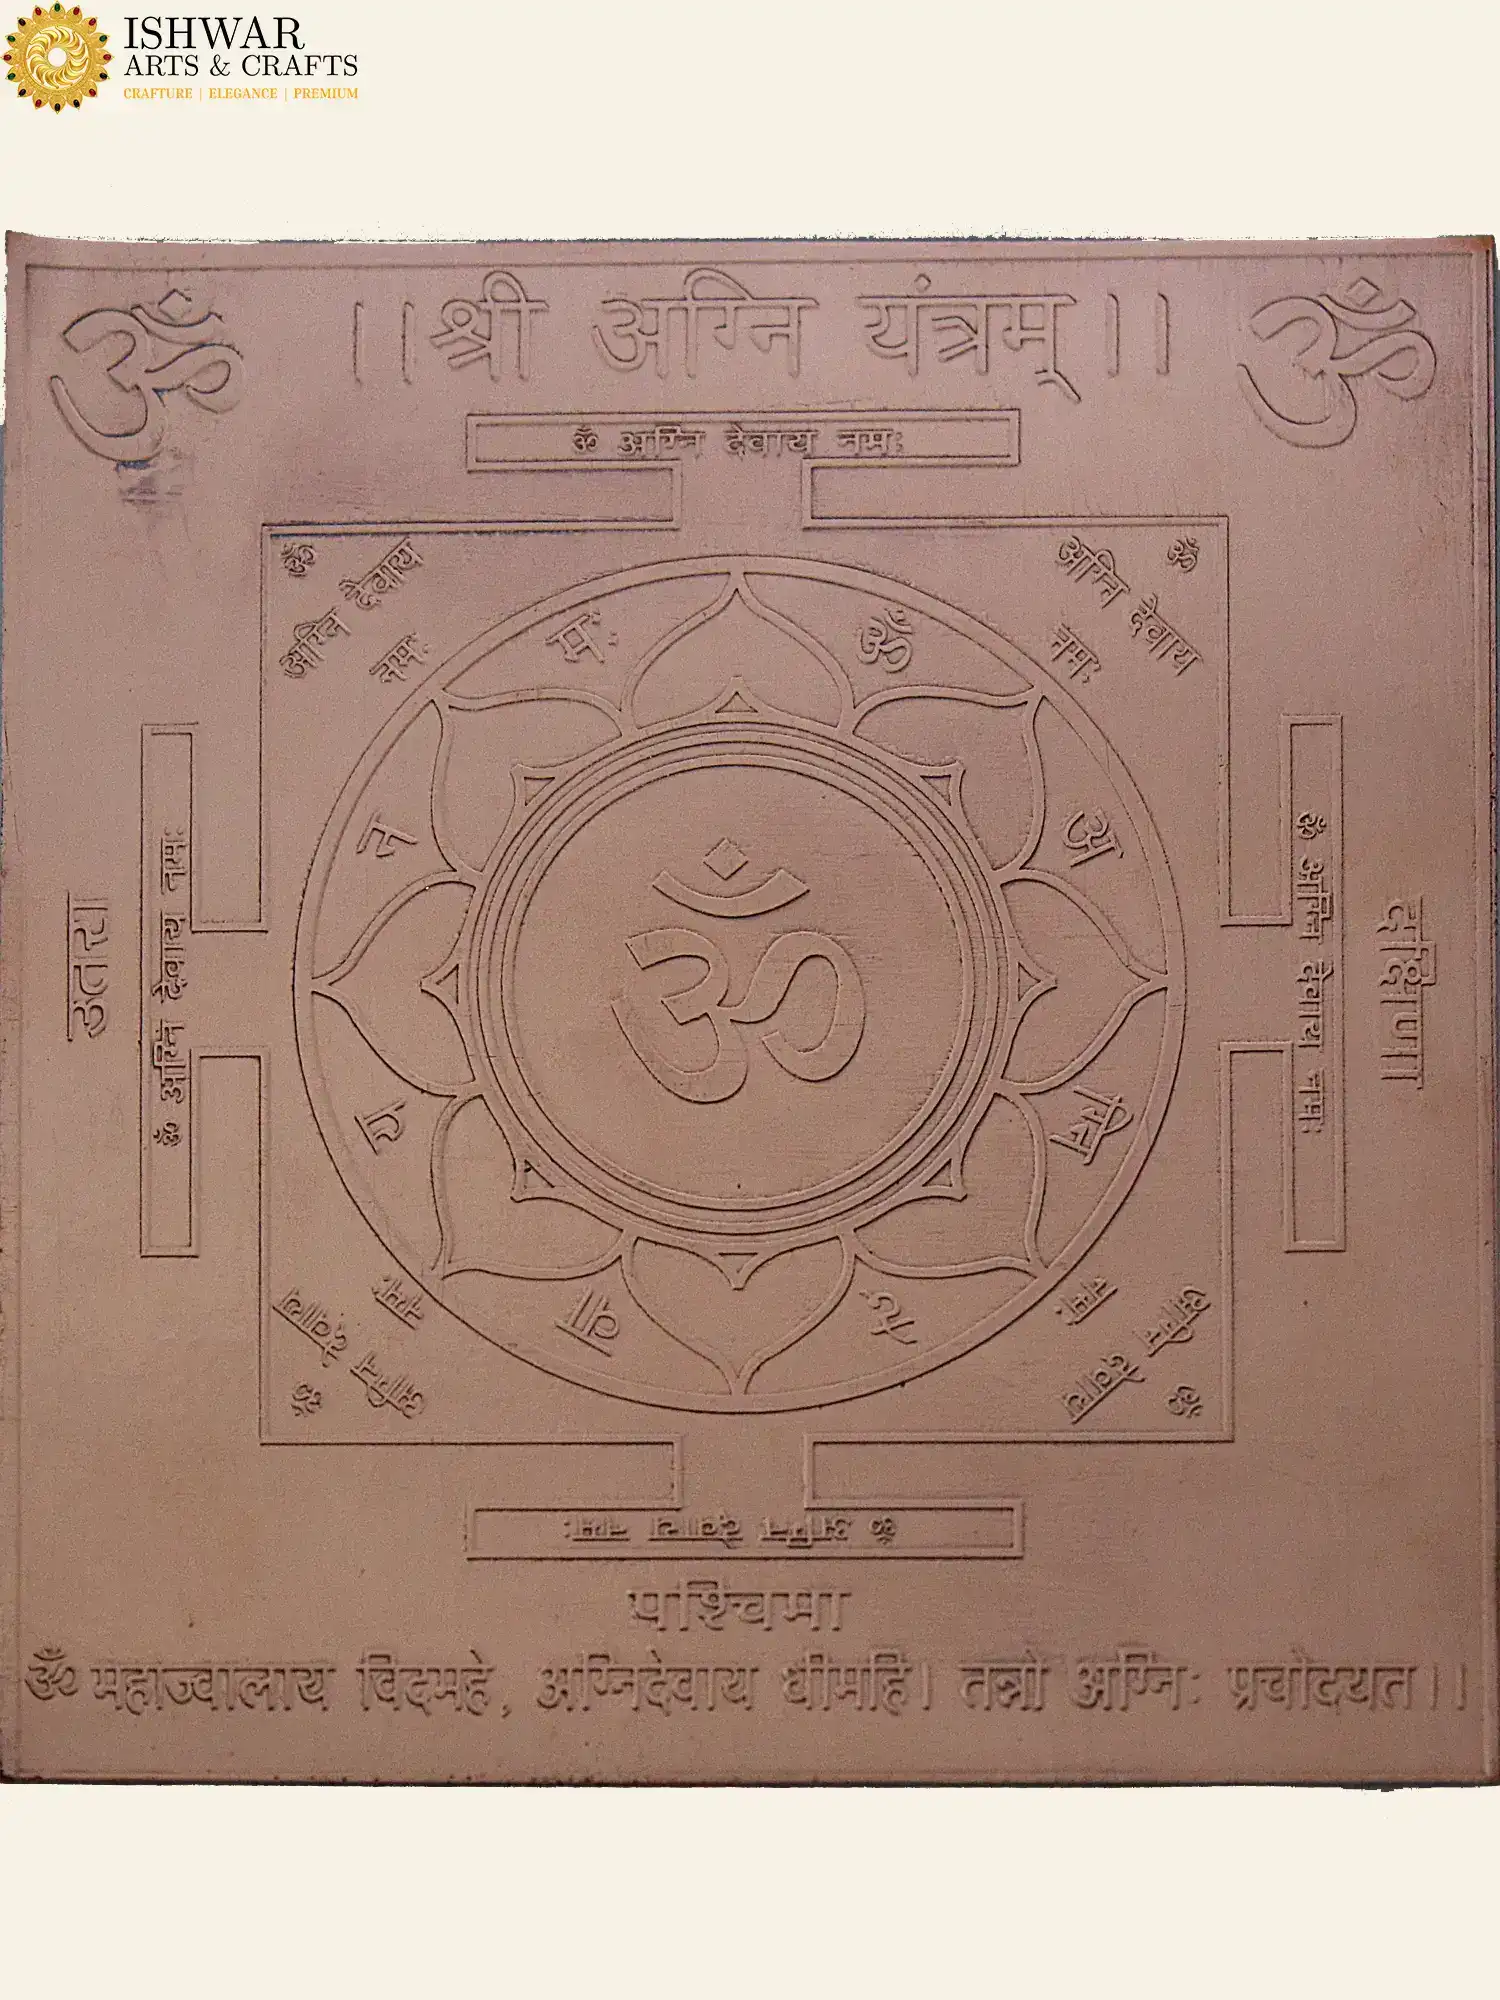 ISHWAR
ARTS & CRAFTS
CRAFTURE | ELEGANCE | PREMIUM
ॐ ||श्री अग्नि यंत्रम्|| ॐ
ॐ अग्नि देवाय नमः
ॐ
अग्नि देवाय
नमः
ॐ
अग्नि देवाय
नमः
ॐ
अ
ग्नि
दे
वा
य
न
मः
ॐ
उतरा
ॐ अग्नि देवाय नमः
ॐ अग्नि देवाय नमः
दक्षिणा
ॐ
अग्नि देवाय
नमः
ॐ
अग्नि देवाय
नमः
ॐ अग्नि देवाय नमः
पश्चिमा
ॐ महाज्वालाय विदमहे, अग्निदेवाय धीमहि। तन्नो अग्निः प्रचोदयत।।